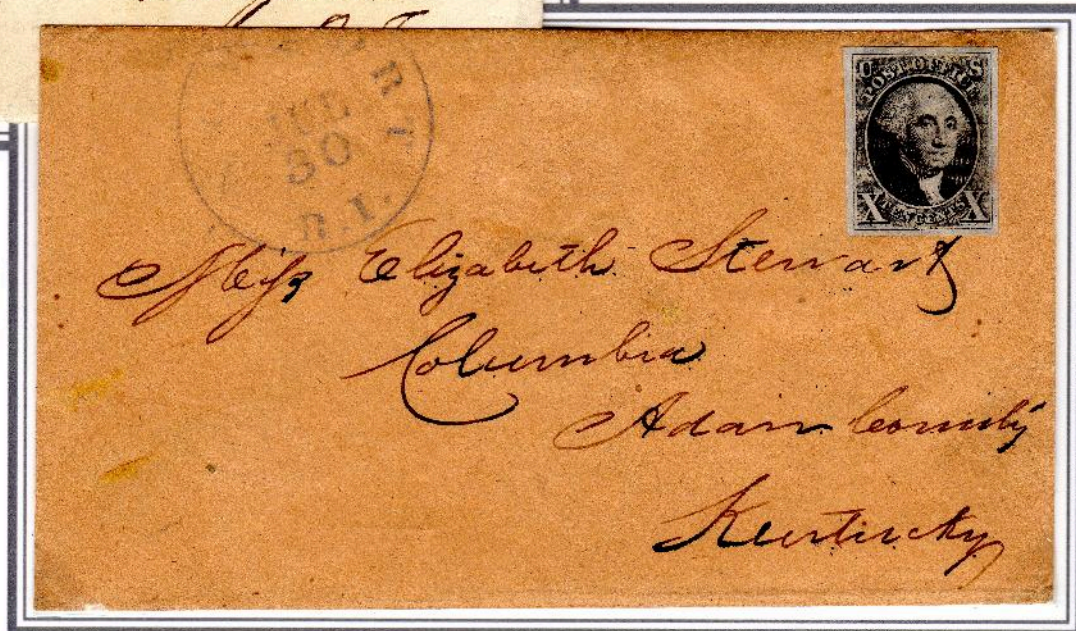 JUL
30
R.I.
POST OFFICE
X X
Miss Elizabeth Stewart
Columbia
Adair County
Kentucky